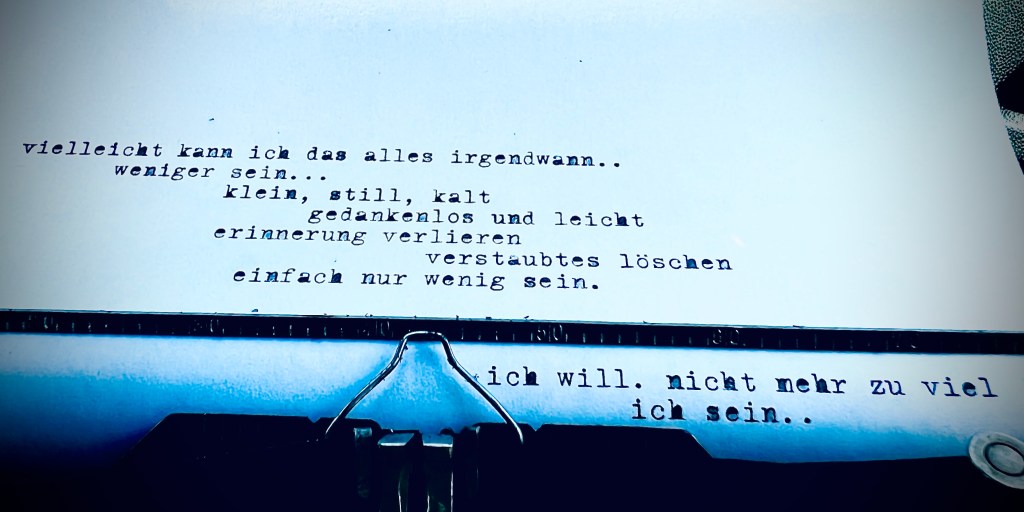 vielleicht kann ich das alles irgendwann..
weniger sein...
klein, still, kalt
gedankenlos und leicht
erinnerung verlieren
verstaubtes löschen
einfach nur wenig sein.
ich will. nicht mehr zu viel
ich sein..